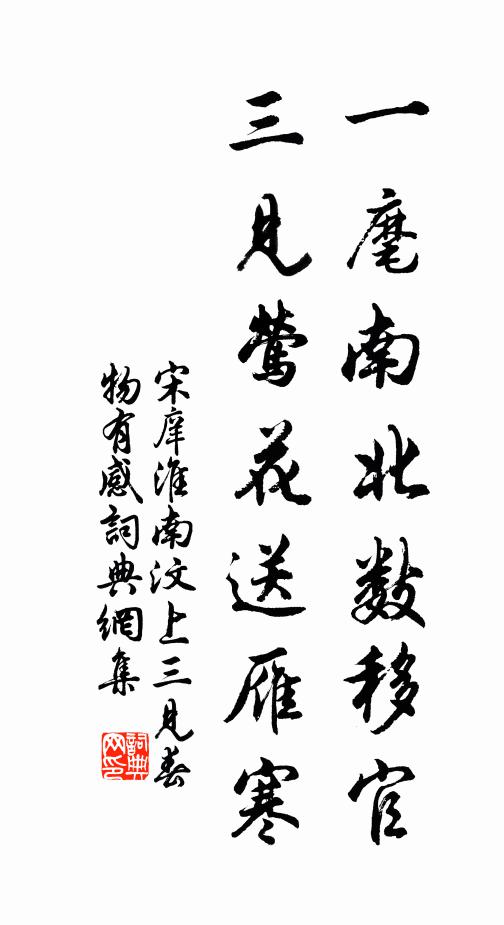 一麾南北數移官
三見鶯花送雁寒
宋庠淮南汶上三見春
物有感詞典網集
詞典網印